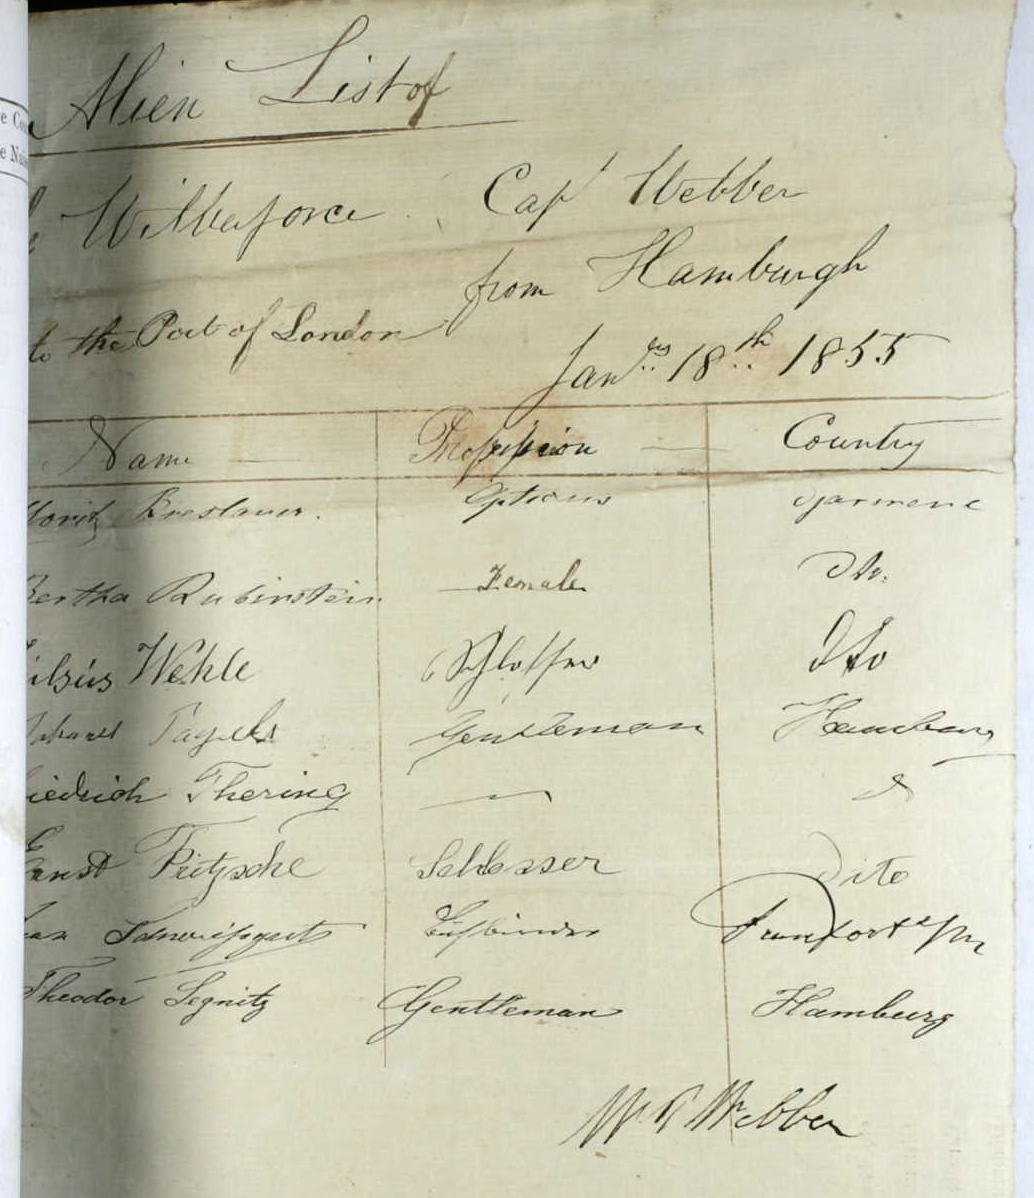 Alien List of
Wilberforce Capt Webber
from Hamburgh
to the Port of London
Jany 18th 1855
Name Profession Country
Moritz Breslauer. Opticus Germene
Bertha Rubinstein Female Do.
Wehle Schlosser Dto
Tagels Gentleman Hamburg
Friedrich Thering — do
Ernst Fritzsche Schlosser Dito
Frankfort a/m
Theodor Segnitz Gentleman Hamburg
W R Webber